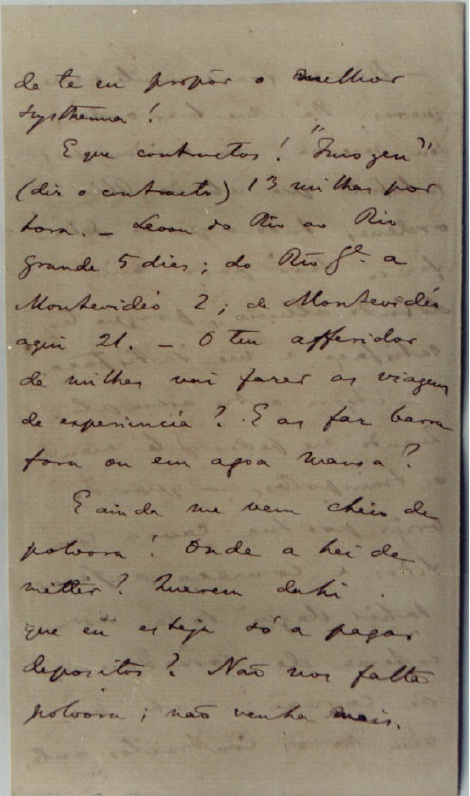 de te eu propôr o melhor
systhema!
E que contractos! "Imogen"
(diz o contracto) 13 milhas por
hora. – Levou do Rio ao Rio
grande 5 dias; do Rio Gde a
Montevidéo 2; de Montevidéo
aqui 21. – O teu afferidor
de milhas vai fazer as viagens
de experiencia? E as faz barra
fora ou em agoa mansa?
E ainda me vem cheio de
polvora! Onde a hei de
metter? Querem dahi
que eu esteja só a pagar
depositos? Não nos falta
polvora; não venha mais.